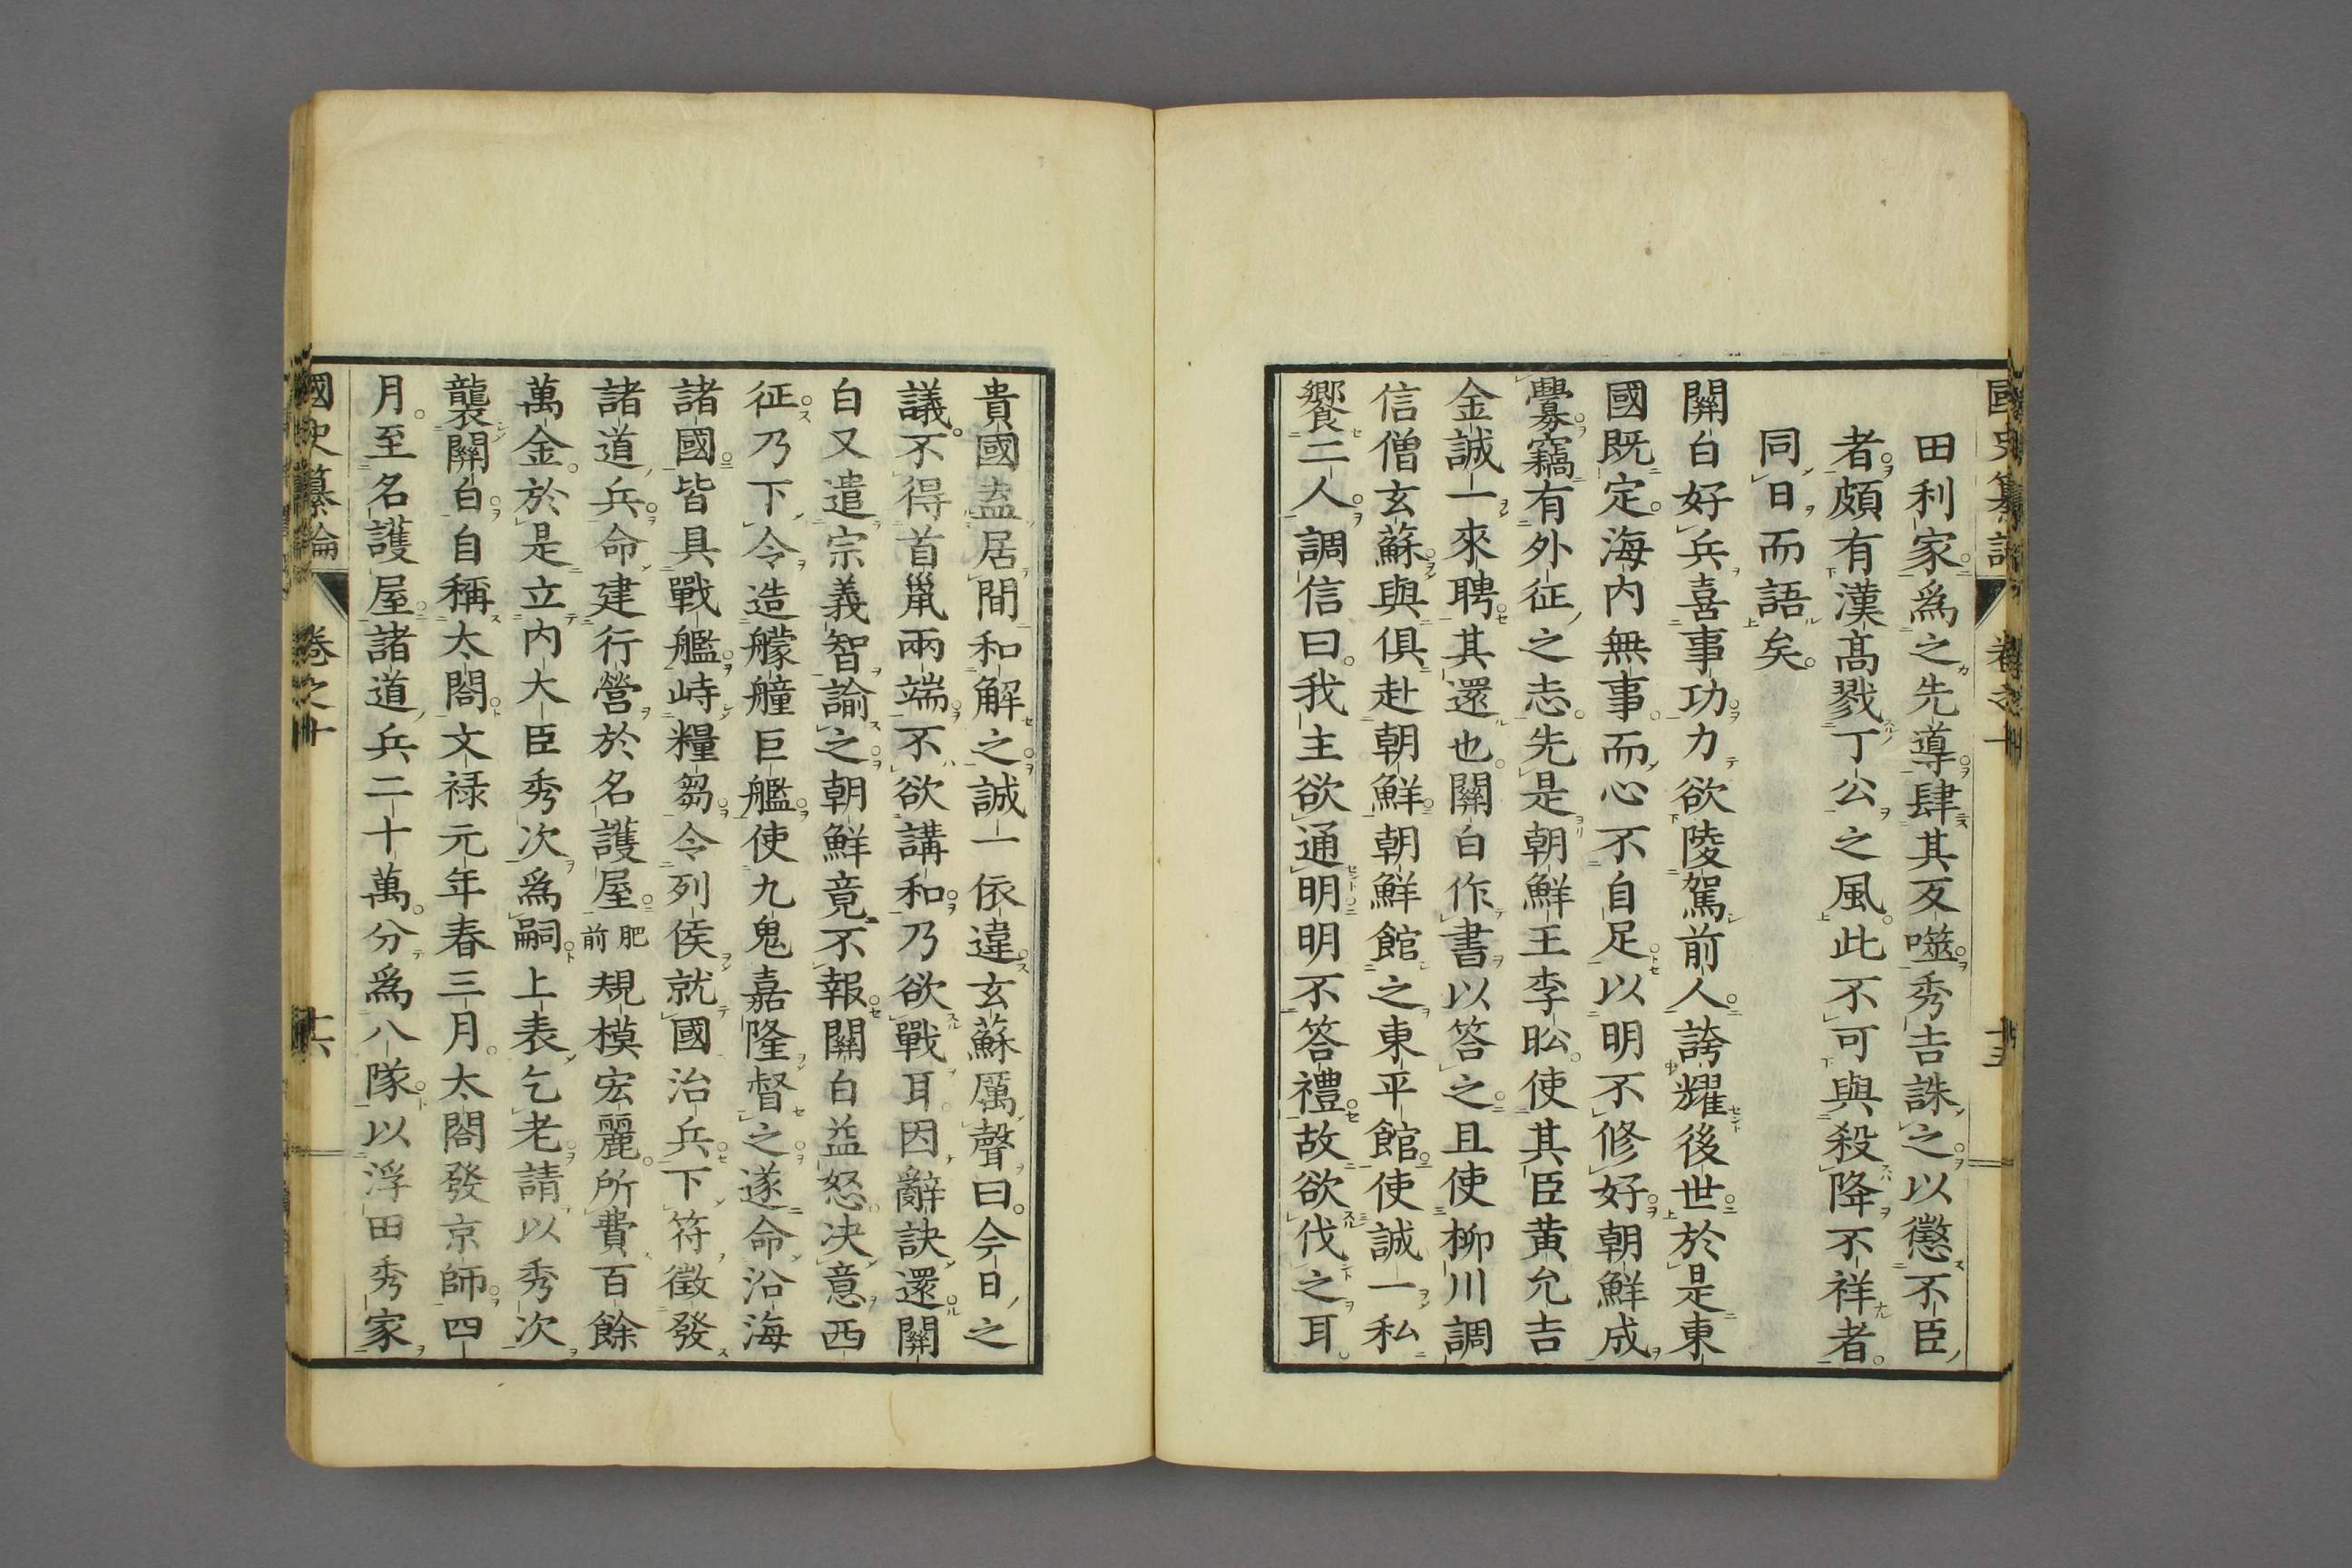 田利家爲之先導肆其反噬秀吉誅之以懲不臣
者頗有漢高戮丁公之風此不可與殺降不祥者
同日而語矣
關白好兵喜事功力欲陵駕前人誇耀後世於是東
國既定海内無事而心不自足以明不修好朝鮮成
釁竊有外征之志先是朝鮮王李昖使其臣黄允吉
金誠一來聘其還也關白作書以答之且使柳川調
信僧玄蘇與俱赴朝鮮朝鮮館之東平館使誠一私
饗二人調信曰我主欲通明明不答禮故欲伐之耳
貴國盍居間和解之誠一依違玄蘇厲聲曰今日之
議不得首鼠兩端不欲講和乃欲戰耳因辭訣還關
白又遣宗義智諭之朝鮮竟不報關白益怒决意西
征乃下令造艨艟巨艦使九鬼嘉隆督之遂命沿海
諸國皆具戰艦峙糧芻令列侯就國治兵下符徵發
諸道兵命建行營於名護屋肥前規模宏麗所費百餘
萬金於是立内大臣秀次爲嗣上表乞老請以秀次
襲關白自稱太閤文禄元年春三月太閤發京師四
月至名護屋諸道兵二十萬分爲八隊以浮田秀家
國史纂論 卷之十 十六